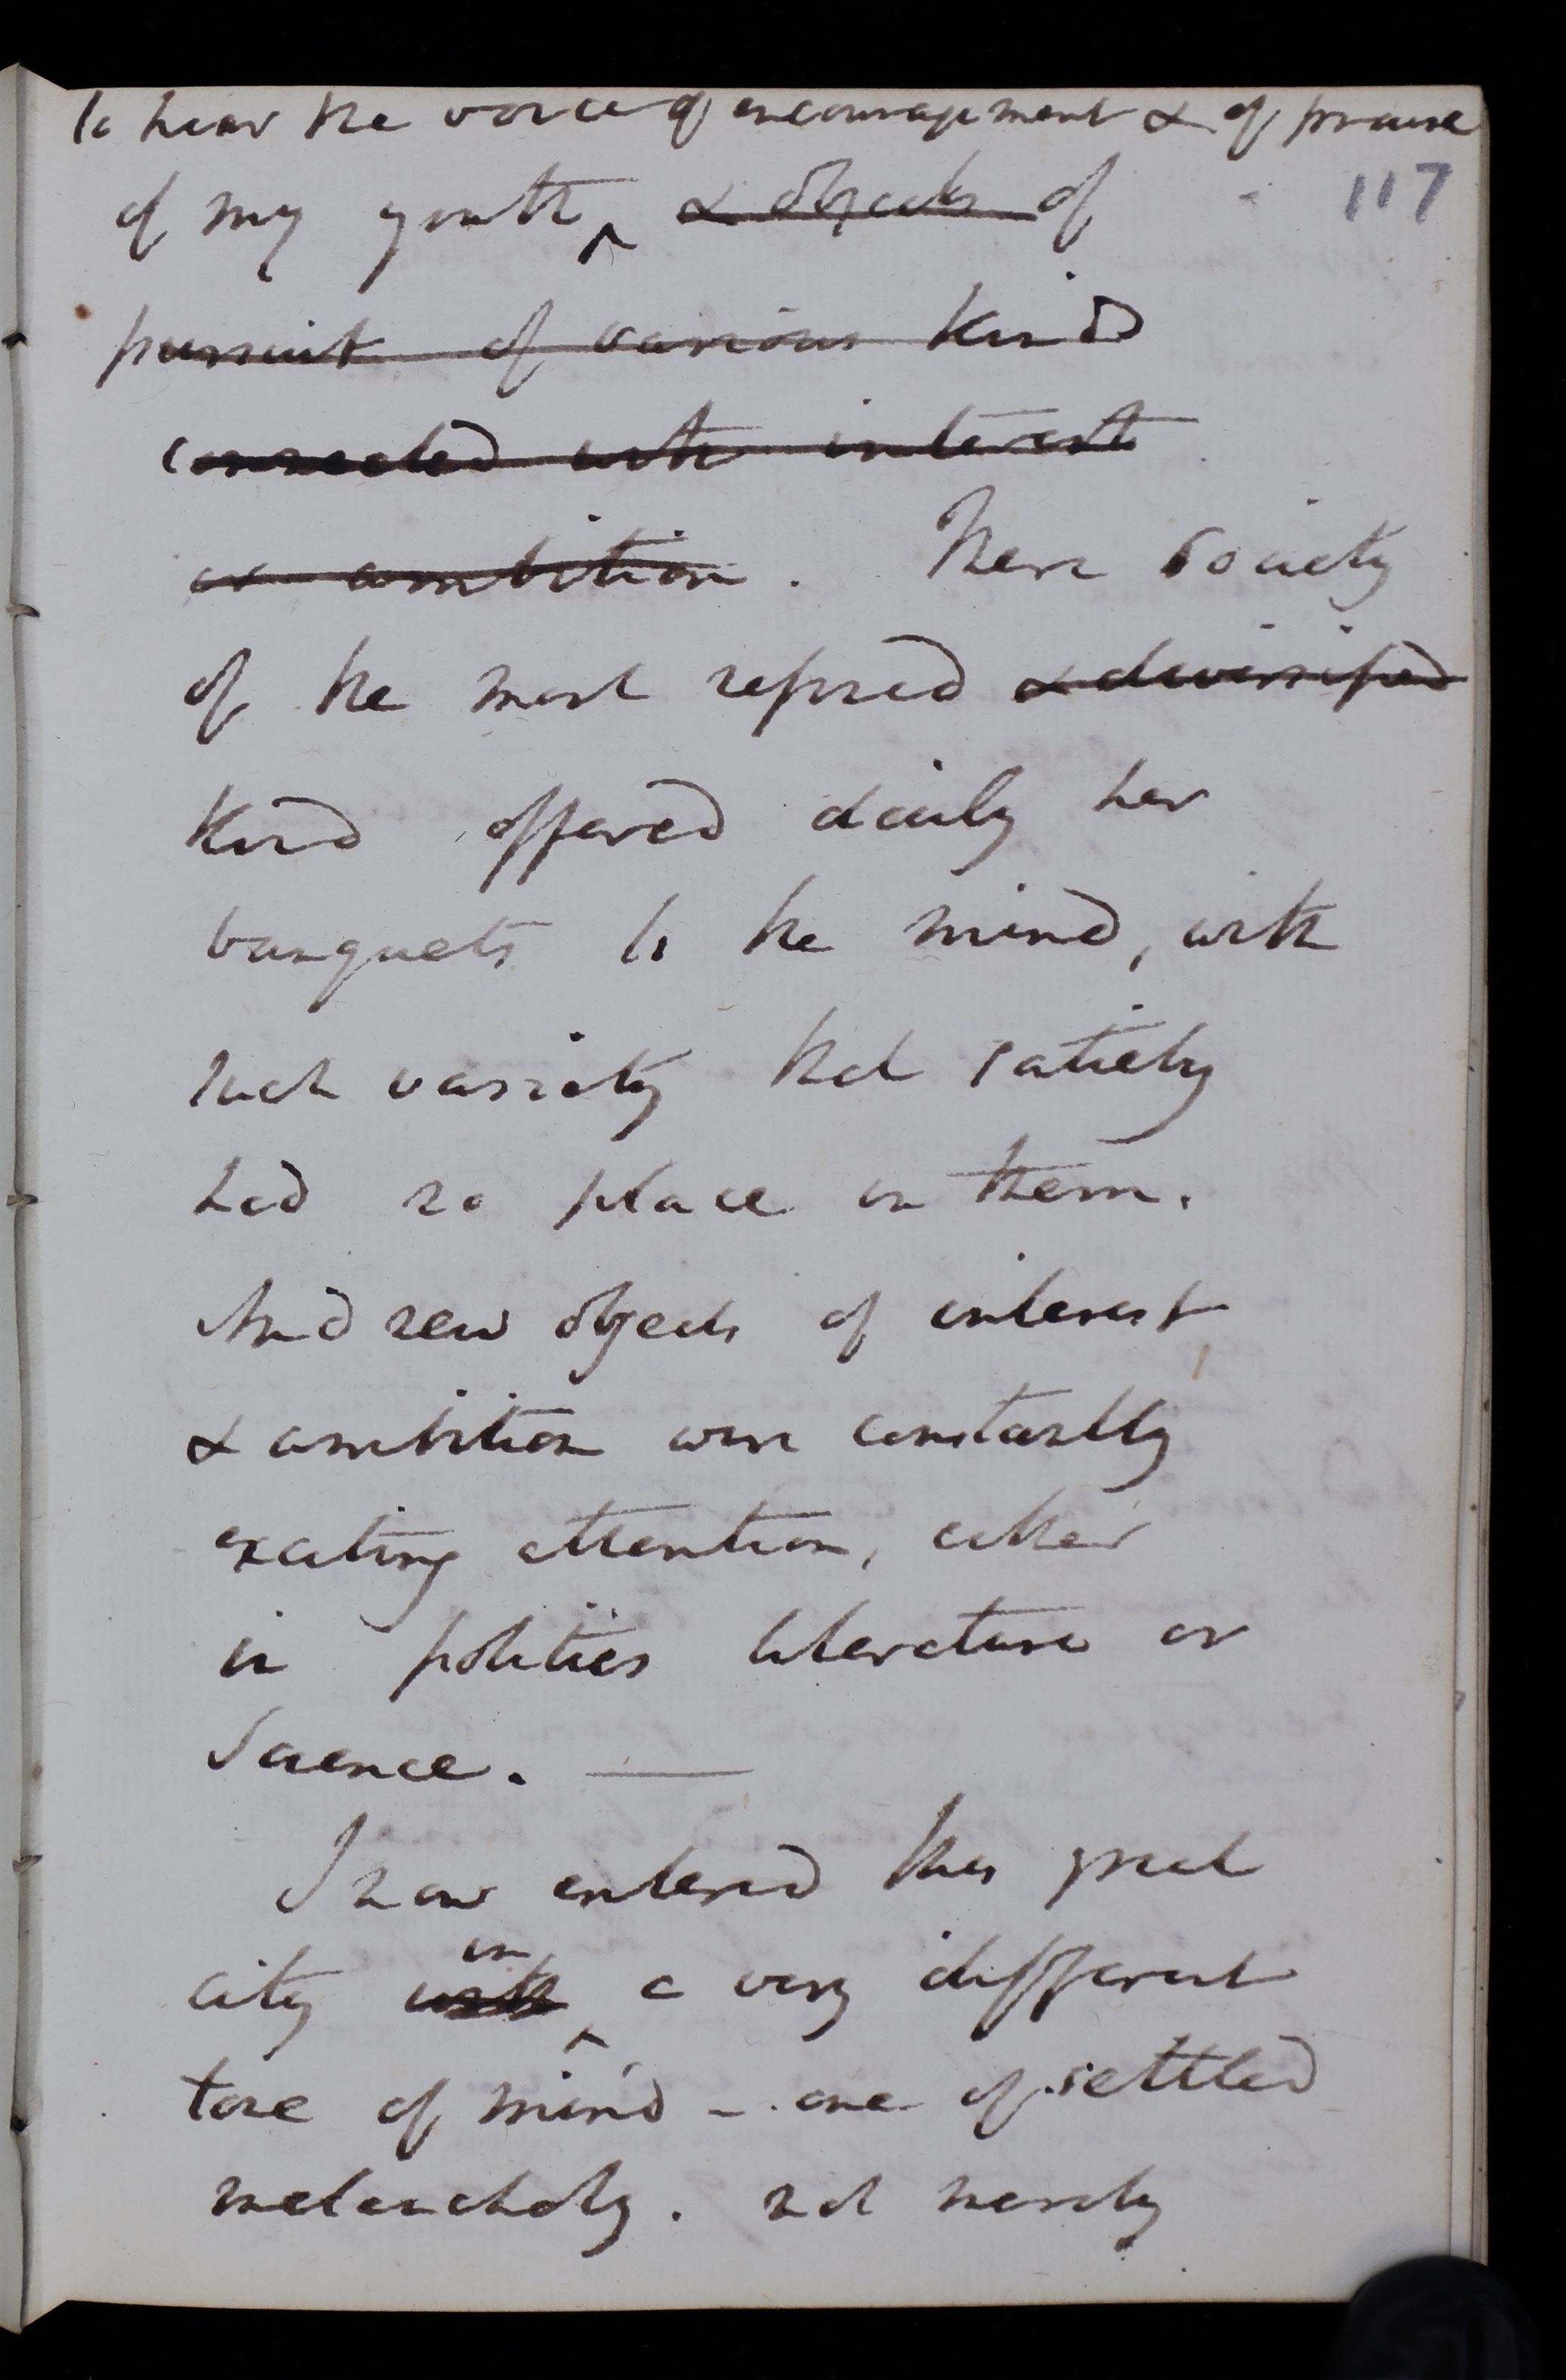 to hear the voice of encouragement & of praise
of my youth & objects of
117
pursuit of various kind
connected with interest
or ambition. There Society
of the most refined & diversified
kind offered daily her
banquets to the mind, with
such variety that satiety
had no place in them.
And new objects of interest
& ambition were constantly
exciting attention, either
in politics literature or
Science. —
I now entered this great
in
city with a very different
tone of mind - one of settled
melancholy. not merely